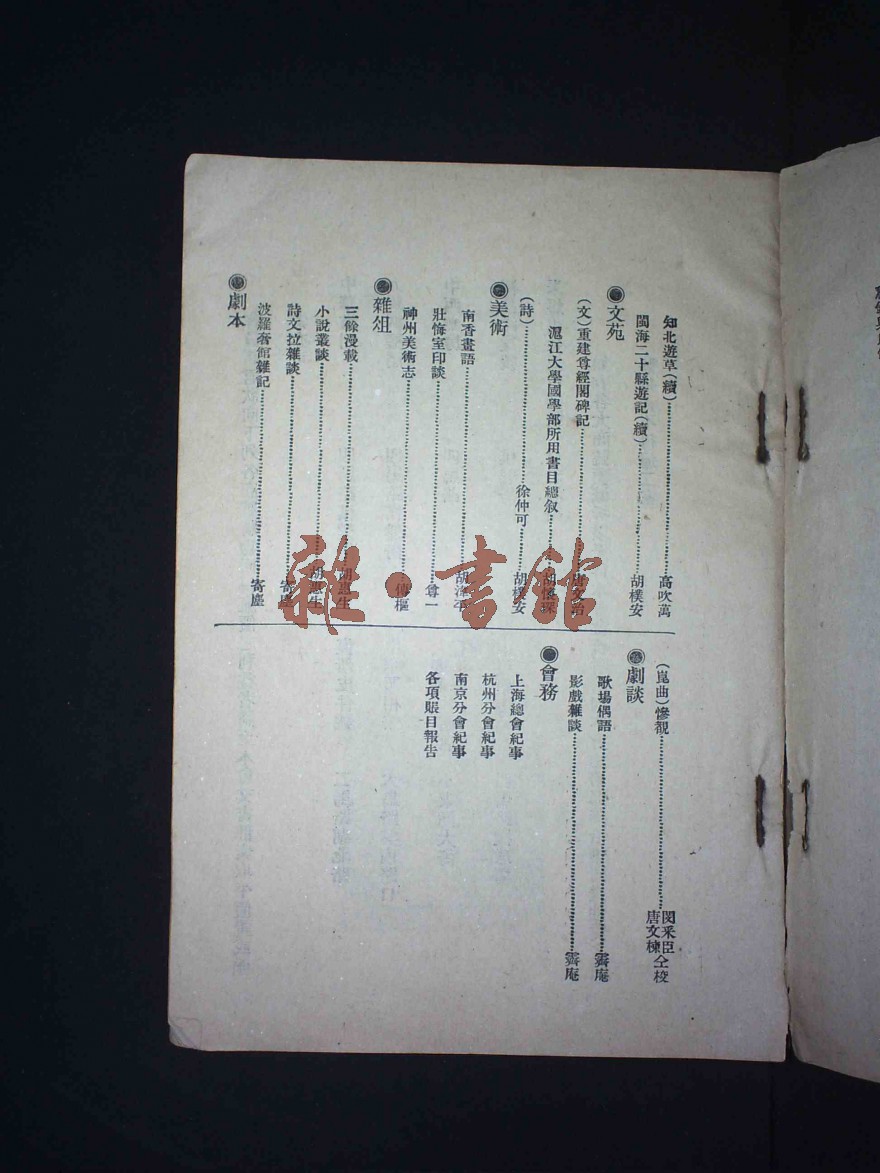 知北遊草(續)……高吹萬
閩海二十縣遊記(續)……胡樸安
◉文苑
(文)重建尊經閣碑記……唐文治
滬江大學國學部所用書目總敘……胡懷琛
(詩)……徐仲可……胡樸安
◉美術
南香畫語
壯悔室印談……尊一
神州美術志……傅樞
◉雜俎
三餘漫載……胡惠生
小說叢談……胡惠生
詩文拉雜談……寄塵
波羅奢館雜記……寄塵
◉劇本
(崑曲)慘覩……閔釆臣 唐文棟 仝校
◉劇談
歌場偶語……霽庵
影戲雜談……霽庵
◉會務
上海總會紀事
杭州分會紀事
南京分會紀事
各項賬目報告
雜·書館